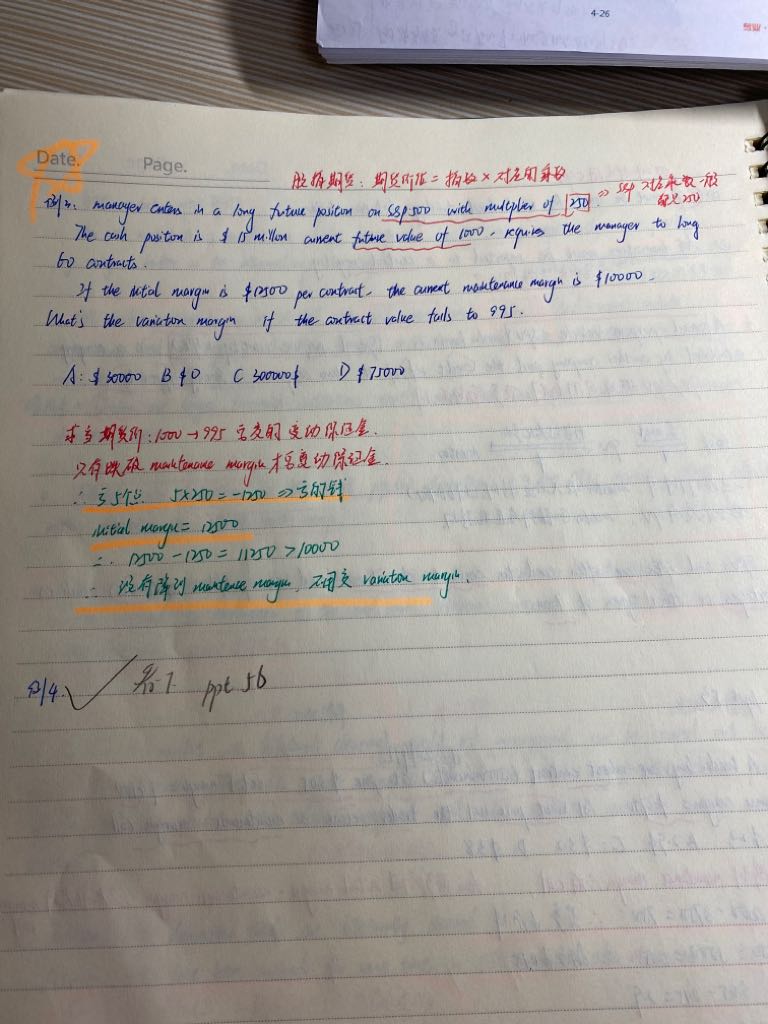 4-26
Date.
Page.
股指期货: 期货价值 = 指数 × 对应的乘数
manager enters in a long future position on S&P 500 with multiplier of 250 => S&P 对应乘数一般都是250
The cash position is $ 15 million current future value of 1000, requires the manager to long
60 contracts.
If the inital margin is $12500 per contract. the current maintenance margin is $10000.
What's the variation margin if the contract value falls to 995.
A: $30000 B $0 C 300000$ D $75000
求当期货价: 1000→995 要交的变动保证金.
只有跌破 maintenance margin 才有变动保证金.
∴ 亏5个点 5×250 = -1250 => 亏的钱
initial margin = 12500
∴ 12500 - 1250 = 11250 > 10000
∴ 没有降到 maintence margin, 不用交 variation margin.
ppt 56